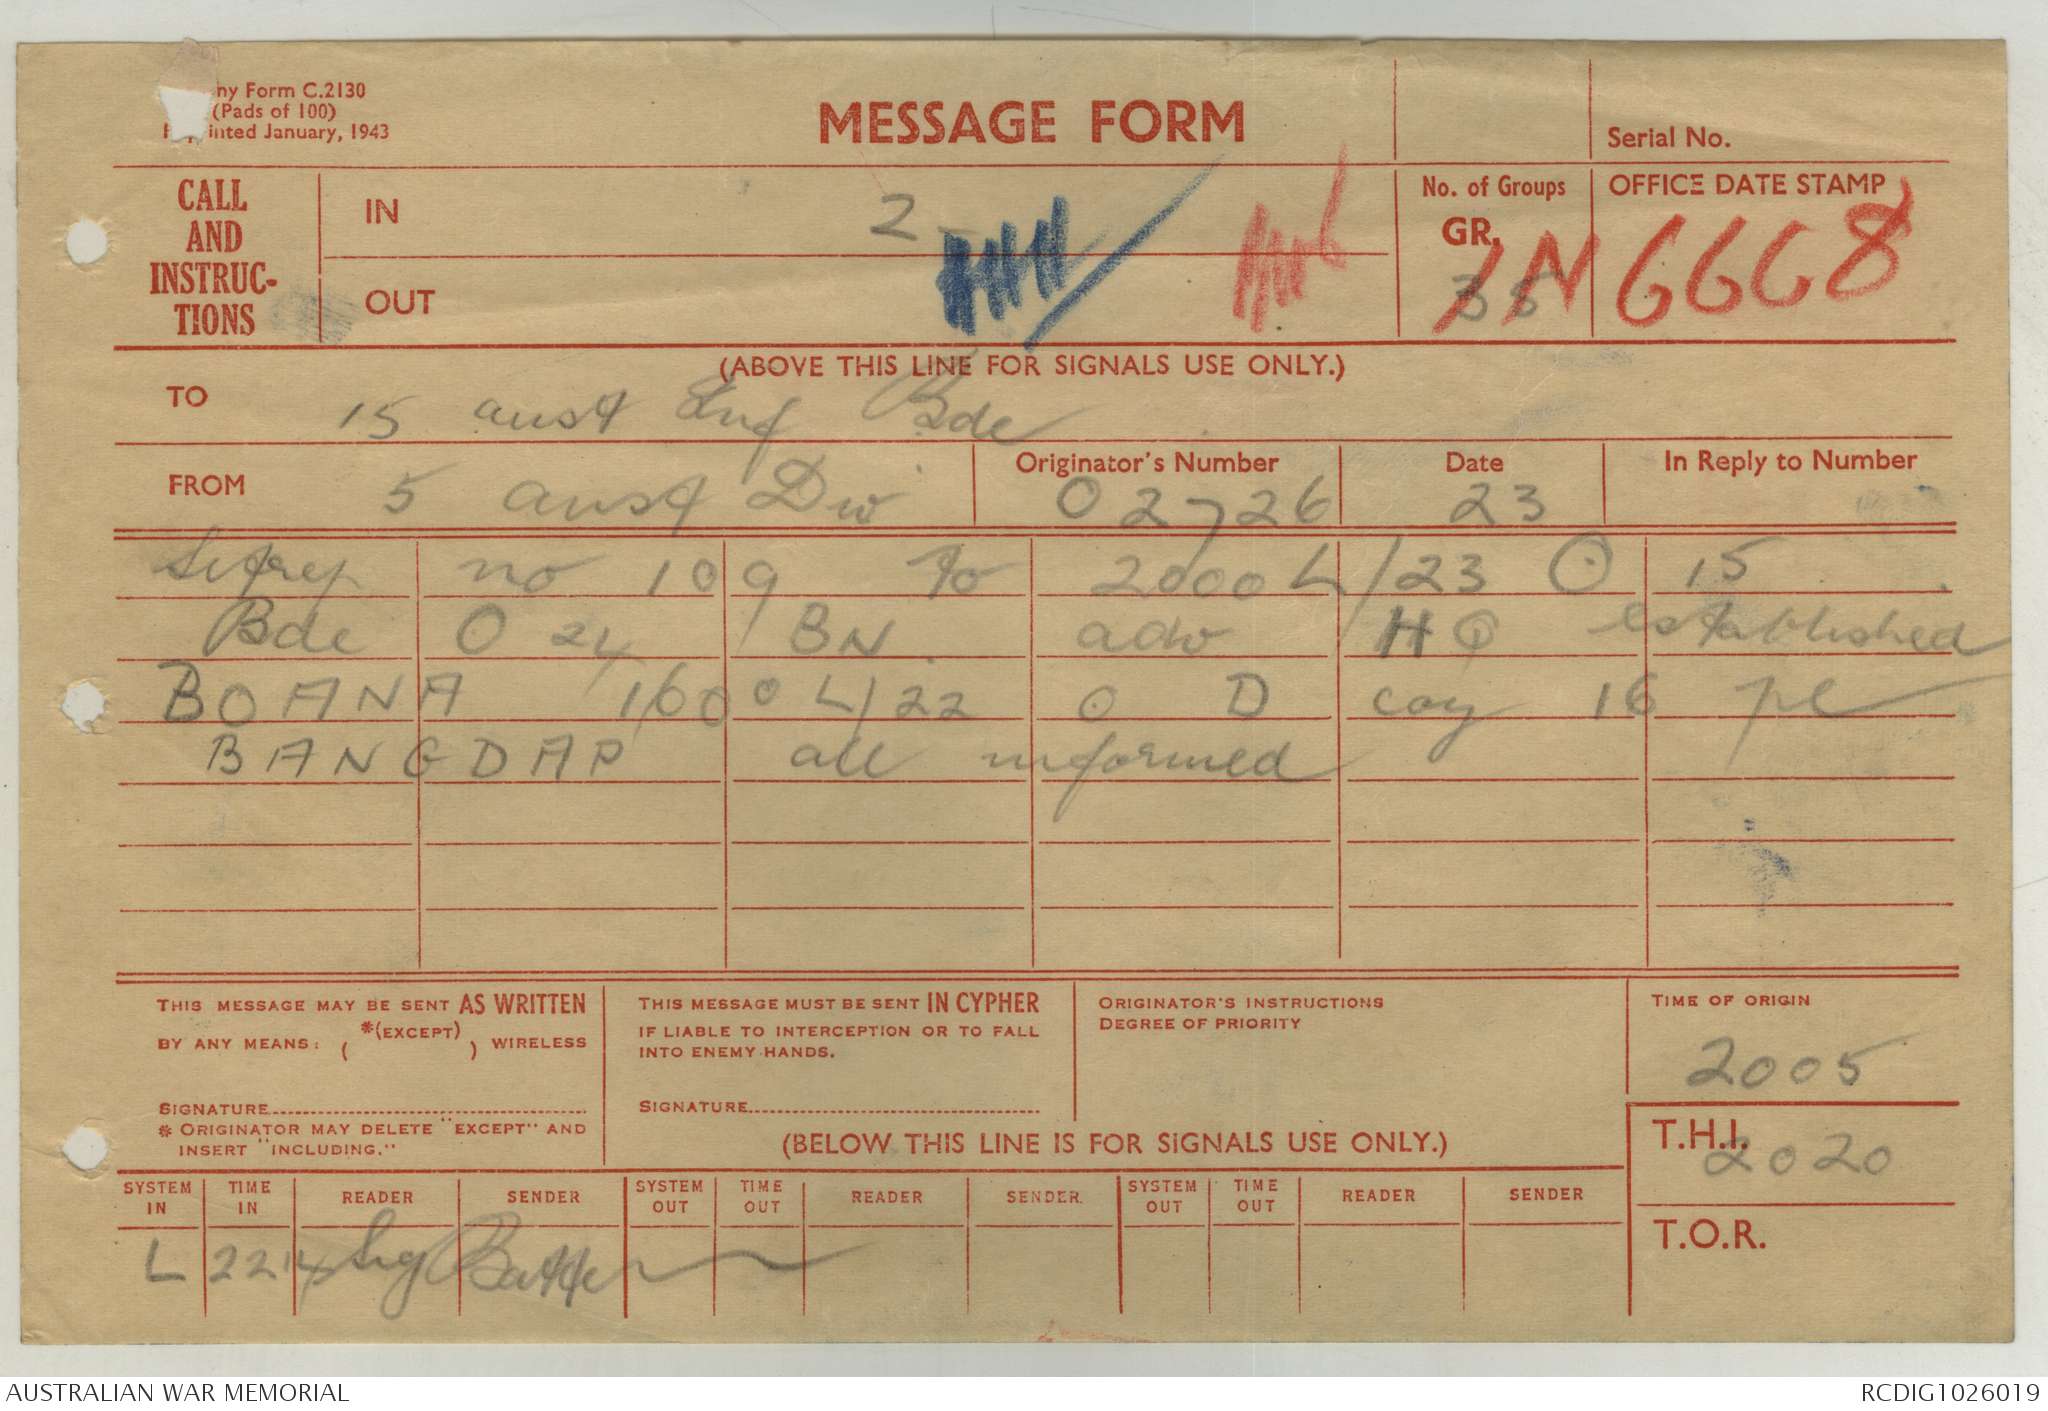 hy Form C.2130
(Pads of 100)
inted January, 1943
MESSAGE FORM
Serial No.
CALL
AND
INSTRUC-
TIONS
IN
2
OUT
No. of Groups
GR.
35
OFFICE DATE STAMP
IN 6668
(ABOVE THIS LINE FOR SIGNALS USE ONLY.)
TO
15 aust Inf Bde
FROM
5 aust Div
Originator's Number
02726
Date
23
In Reply to Number
Sitrep no 109 to 2000L/23 O 15
Bde O 24 BN adv HQ established
BOANA 1600L/22 O D coy 16 pl
BANGDAP all informed
THIS MESSAGE MAY BE SENT AS WRITTEN
BY ANY MEANS: ( *(EXCEPT) ) WIRELESS
SIGNATURE
* ORIGINATOR MAY DELETE "EXCEPT" AND
INSERT "INCLUDING."
THIS MESSAGE MUST BE SENT IN CYPHER
IF LIABLE TO INTERCEPTION OR TO FALL
INTO ENEMY HANDS.
SIGNATURE
ORIGINATOR'S INSTRUCTIONS
DEGREE OF PRIORITY
TIME OF ORIGIN
2005
(BELOW THIS LINE IS FOR SIGNALS USE ONLY.)
T.H.I.
2020
T.O.R.
SYSTEM IN
TIME IN
READER
SENDER
SYSTEM OUT
TIME OUT
READER
SENDER
SYSTEM OUT
TIME OUT
READER
SENDER
L 2214 Sig
AUSTRALIAN WAR MEMORIAL
RCDIG1026019